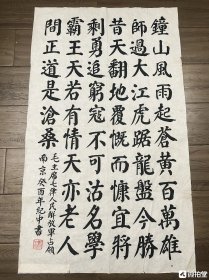 鐘山風雨起蒼黃百萬雄
師過大江虎踞龍盤今勝
昔天翻地覆慨而慷宜將
剩勇追窮寇不可沽名學
霸王天若有情天亦老人
間正道是滄桑
毛主席七律人民解放軍占領
南京癸酉年紀中書